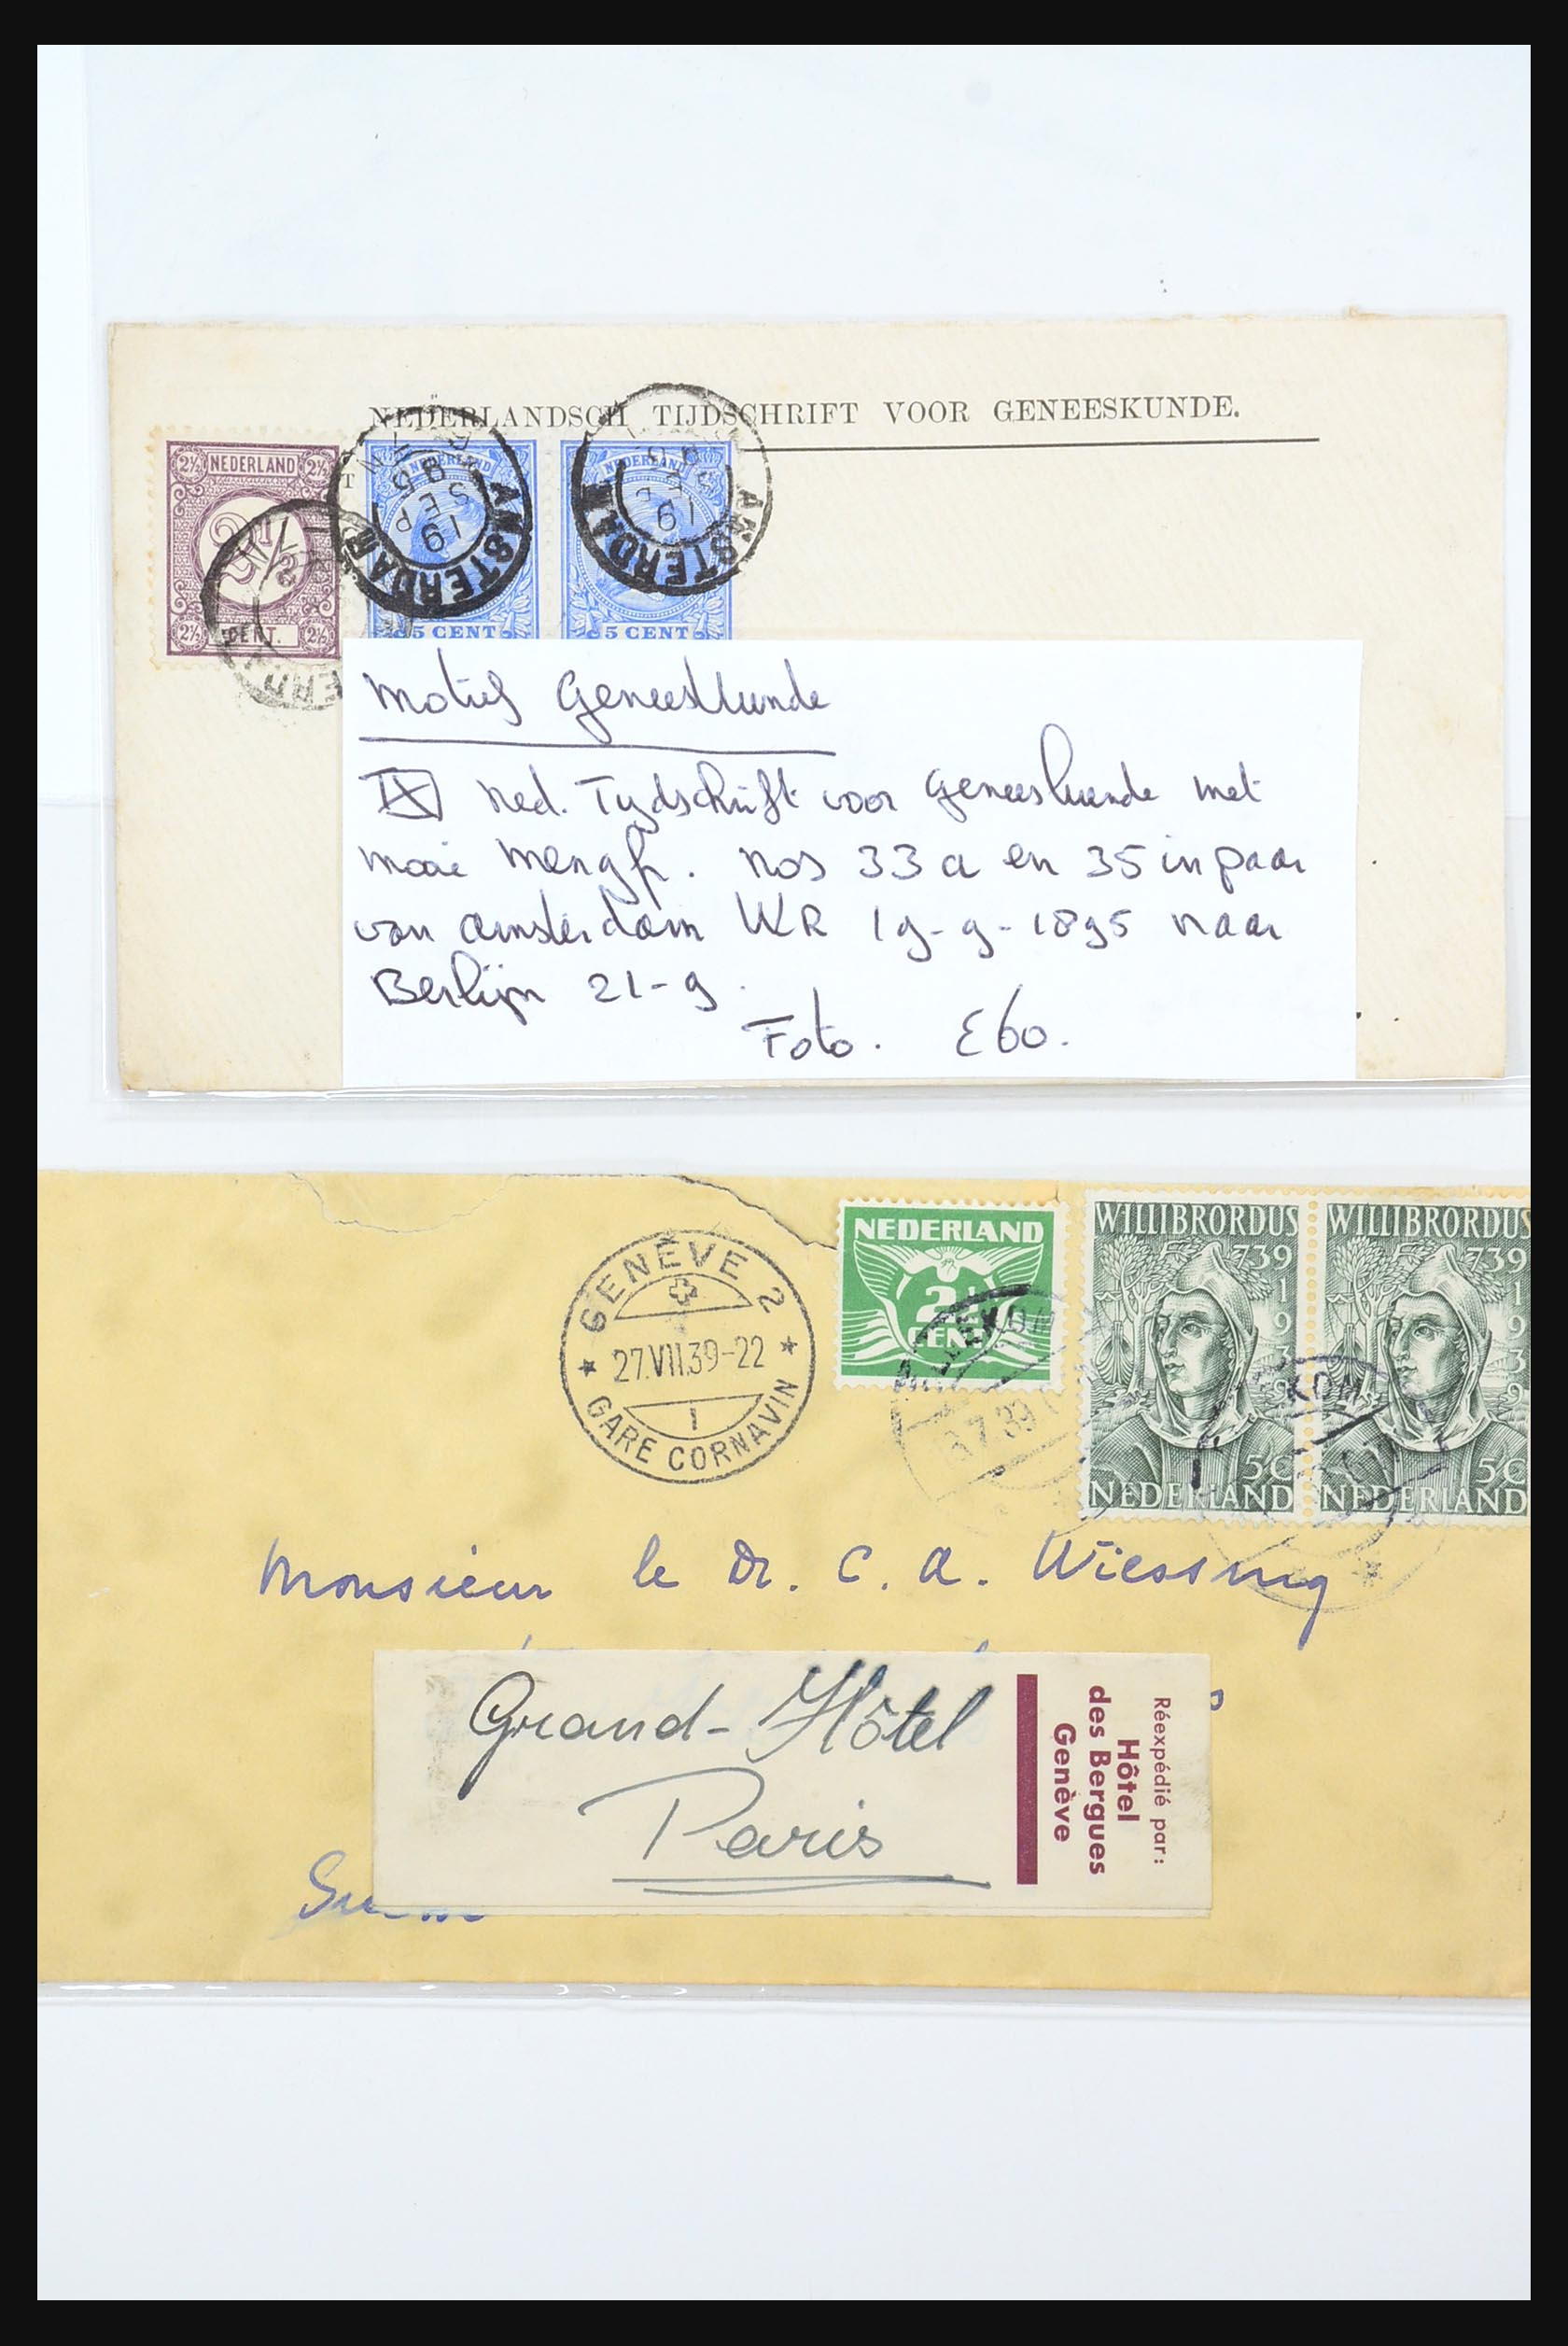 NEDERLANDSCH TIJDSCHRIFT VOOR GENEESKUNDE.
2½ NEDERLAND 2½
2½
2½ CENT. 2½
NEDERLAND
5 CENT
NEDERLAND
5 CENT
AMSTERDAM
19 SEP 95
AMSTERDAM
19 SEP 95
Motief Geneeskunde
Ned. Tijdschrift voor geneeskunde met
mooie mengfr. nos 33a en 35 in paar
van amsterdam KR 19-9-1895 naar
Berlijn 21-9.
Foto. E60.
GENÈVE 2
27.VII.39-22
1
GARE CORNAVIN
NEDERLAND
2½
CENT
WILLIBRORDUS
739
1939
5C
NEDERLAND
WILLIBRORDUS
739
1939
5C
NEDERLAND
Monsieur le Dr. C. A. Wiessing
Grand-Hôtel
Paris
Réexpédié par:
Hôtel
des Bergues
Genève